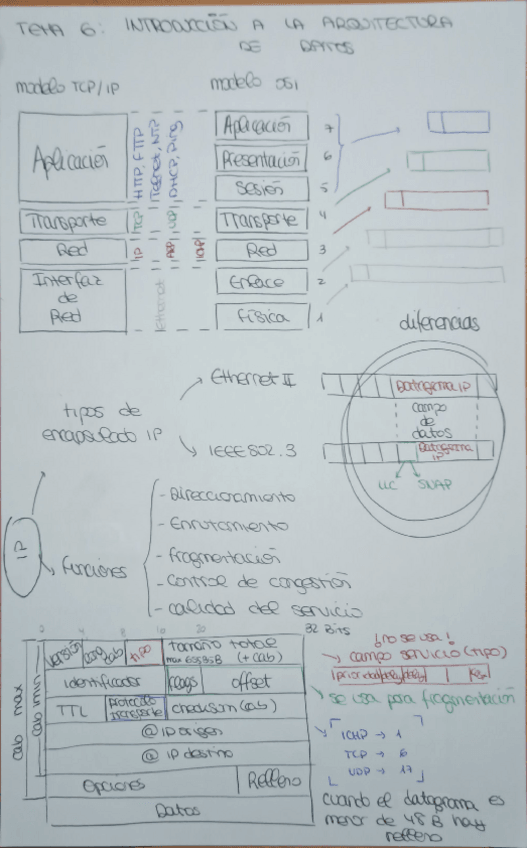 TEMA 6: INTRODUCCIÓN A LA ARQUITECTURA
DE DATOS
modelo TCP/IP
modelo OSI
Aplicación
HTTP, FTTP
Telnet, NTP
DHCP, Ping
Transporte
TCP
UDP
Red
IP
ARP
ICMP
Interfaz
de
Red
Ethernet
Aplicación 7
Presentación 6
Sesión 5
Transporte 4
Red 3
Enlace 2
Física 1
diferencias
tipos de
encapsulado IP
Ethernet II
IEEE 802.3
Datagrama IP
campo
de
datos
Datagrama
IP
LLC SNAP
IP
Funciones
- Direccionamiento
- Enrutamiento
- Fragmentación
- Control de congestión
- calidad del servicio
0 4 8 32 Bits
cab max
cab min
versión
long cab
tipo
tamaño total
max 65535B (+cab)
identificador
flags
offset
TTL
protocolo
transporte
checksum (cab)
@ IP origen
@ IP destino
Opciones
Relleno
Datos
¡no se usa!
campo servicio (tipo)
se usa para fragmentación
ICMP → 1
TCP → 6
UDP → 17
cuando el datagrama es
menor de 48 B hay
relleno